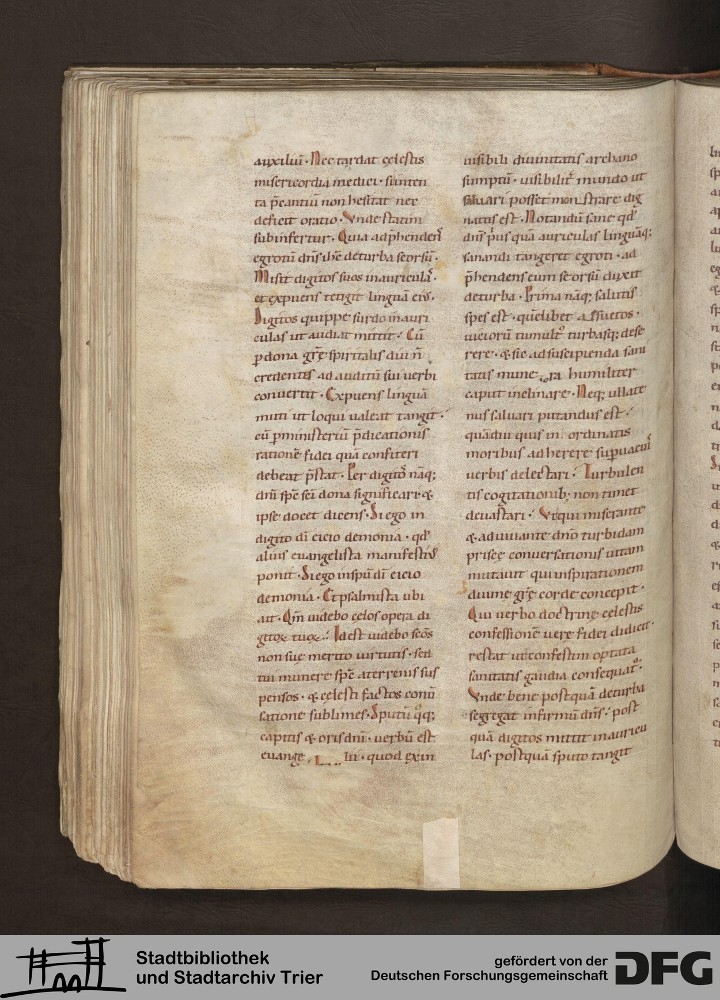 auxiliū · Nec tardat cęlestis
misericordia medici · sanita
ta p̄cantiū non hesitat nec
deficit oratio · Vnde statim
subinfertur · Quia adp̄henden̄
egrotū dn̄s ih̄c de turba seorsū ·
Misit digitos suos in auriculā ·
et expuens tetigit linguā eiꝰ ·
Digitos quippe surdo in auri
culas ut audiat mittit · Cū
ꝑ dona grę̄ spiritalis diu n̄
credentes ad auditū sui uerbi
conuertit · Expuens linguā
muti ut loqui ualeat tangit ·
cū ꝑ ministeriū p̄dicationis
rationē fidei quā confiteri
debeat p̄stat · Per digitos nāq;
dn̄i spc̄ sc̄i dona significari · &
ipse docet dicens · Si ego in
digito dī eicio demonia · qd̄
aliuſ euangelista manifestiꝰ
ponit · Si ego in sp̄u dī eicio
demonia · Et psalmista ubi
ait · Qm̄ uidebo cęlos opera di
gitoꝝ tuoꝝ · Id est uidebo sc̄os
non suę merito uirtutis · sed
tui munere sp̄c a terrenis sus
pensos · & cęlesti factos conū
satione sublimes · Sputū q̄q;
capitis & oris dn̄i · uerbū est
euange lii · quod ex in
uisibili diuinitatis archano
sumptū · uisibilit̄ mundo ut
saluari posset monstrare dig
natus est · Notandū sane qd̄
dn̄s p̄us quā auriculas linguāq;
sanandi tangeret egroti · ad
p̄hendens eum seorsū duxit
de turba · Prima nāq; salutis
spes est · quēlibet assuetos ·
uiciorū tumultꝰ turbasq; dese
rere · & sic ad suscipienda sani
tatis mune ra humiliter
caput inclinare · Neq; ullate
nus saluari putandus est ·
quādiu quis in ordinatis
moribus adherere supuacuis
uerbis delectari · Turbulen
tis cogitationib; non timet
deuastari · At qui miserante
& adiuuante dn̄o turbidam
priscę conuersationis uitam
mutauit qui inspirationem
diuine grę̄ corde concepit ·
Qui uerbo doctrinę cęlestis
confessionē uere fidei didicit ·
restat ut confestim optata
sanitatis gaudia consequat̄ ·
Vnde bene postquā de turba
segregat infirmū dn̄s · post
quā digitos mittit in auricu
las · postquā sputo tangit
Stadtbibliothek
und Stadtarchiv Trier
gefördert von der
Deutschen Forschungsgemeinschaft
DFG